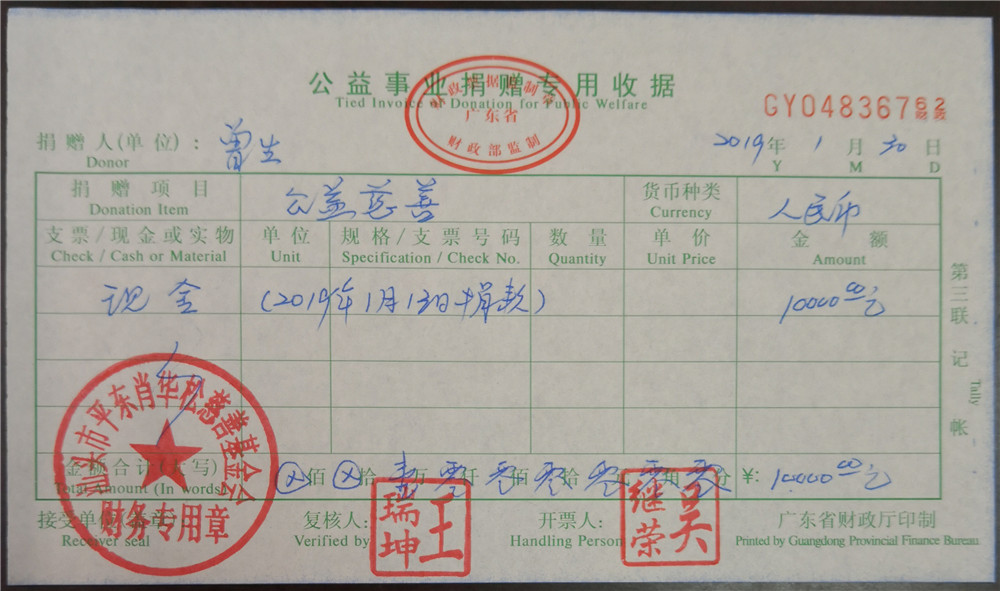 公益事业捐赠专用收据
Tied Invoice of Donation for Public Welfare
财政票据监制章
广东省
财政部监制
GY04836762
捐赠人(单位)：曾生 2019年1月30日
Donor Y M D
捐赠项目 公益慈善 货币种类 人民币
Donation Item Currency
支票/现金或实物 单位 规格/支票号码 数量 单价 金额
Check / Cash or Material Unit Specification / Check No. Quantity Unit Price Amount
现金 (2019年1月13日捐款) 10000.00元
第三联 记帐
Tally
汕头市平东肖华松慈善基金会
财务专用章
金额合计(大写) ⊗佰⊗拾壹万零仟零佰零拾零元零角零分 ¥: 10000.00元
Total Amount (In words)
接受单位(盖章): 复核人: 王瑞坤 开票人: 吴继荣 广东省财政厅印制
Receiver seal Verified by Handling Person Printed by Guangdong Provincial Finance Bureau